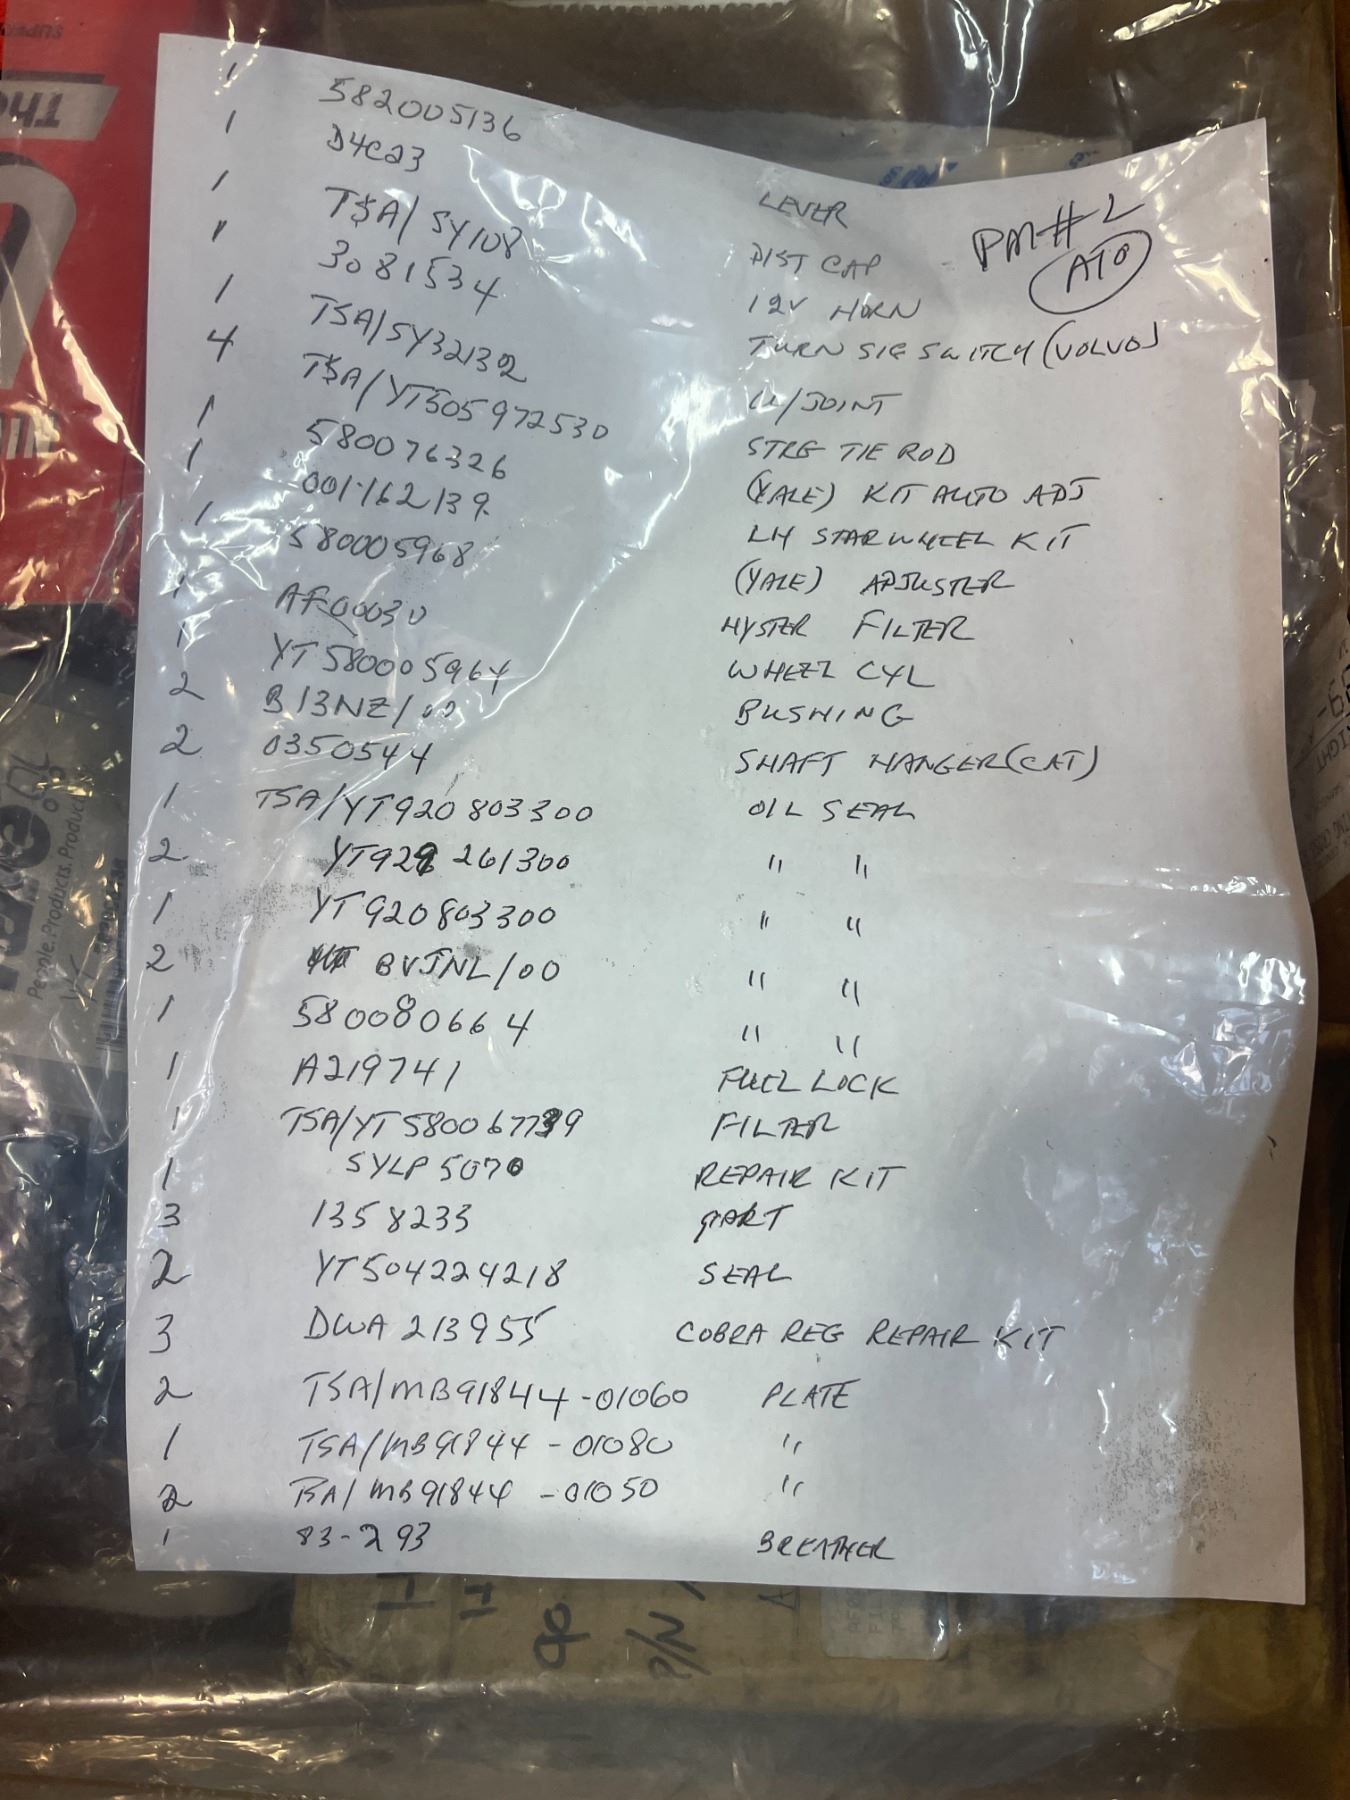 1 582005136 LEVER
1 D4C23 DIST CAP
1 TSA/SY108 12V HORN
1 3081534 TURN SIG SWITCH (VOLVO)
1 TSA/SY32132 U/JOINT
4 TSA/YT505972530 STRG TIE ROD
1 580076326 (YALE) KIT AUTO ADJ
1 001-162139 LH STARWHEEL KIT
1 580005968 (YALE) ADJUSTER
1 AF00030 HYSTER FILTER
1 YT580005964 WHEEL CYL
2 B13NZ/00 BUSHING
2 0350544 SHAFT HANGER (CAT)
1 TSA/YT920803300 OIL SEAL
2 261300 " "
1 YT920803300 " "
2 BVJNL/00 " "
1 580080664 " "
1 A219741 FUEL LOCK
1 TSA/YT580067739 FILTER
1 SYLP5070 REPAIR KIT
3 1358233 PART
2 YT504224218 SEAL
3 DWA213955 COBRA REG REPAIR KIT
2 TSA/MB91844-01060 PLATE
1 TSA/MB91844-01080 "
2 TSA/MB91844-01050 "
1 83-293 BREATHER
PM#2
ATO
People.Products.Produc
P/N